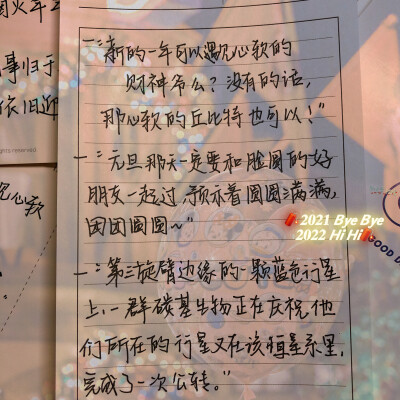 一:"新的一年可以遇见心软的
财神爷么？没有的话，
那心软的丘比特也可以！"
一:"元旦那天一定要和脸圆的好
朋友一起过，预示着圆圆满满，
团团圆圆~"
2021 Bye Bye
2022 Hi Hi
一:"第三旋臂边缘的一颗蓝色行星
上，一群碳基生物正在庆祝他
们所在的行星又在该恒星系里，
完成了一次公转。"
事归于
依旧迎
心软
GOOD D